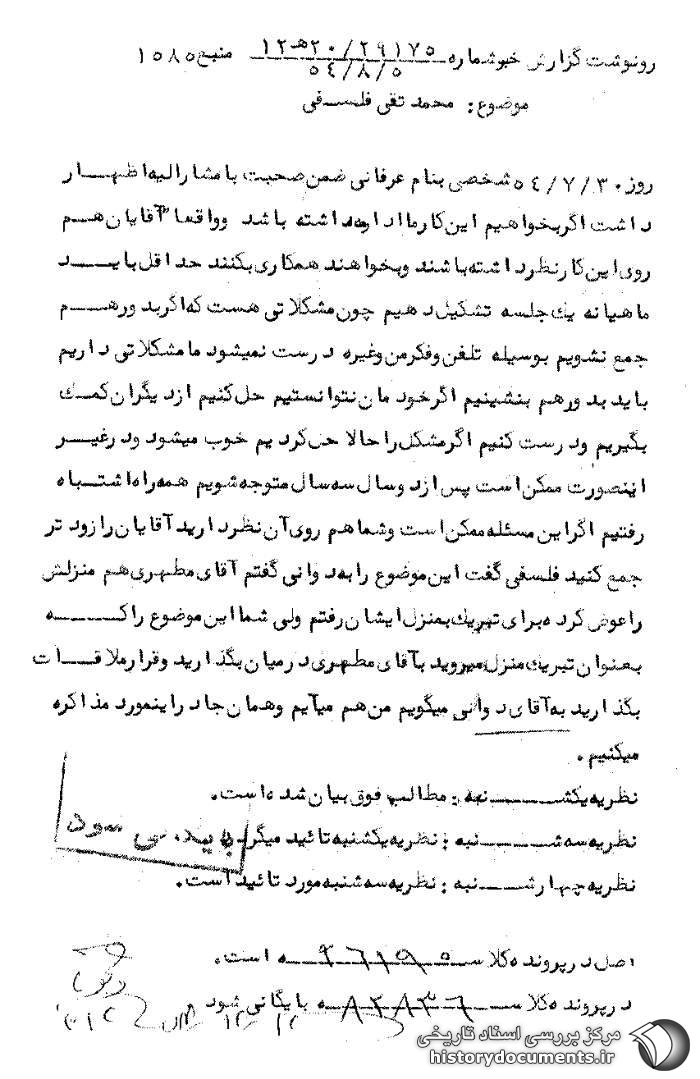 رونوشت گزارش خبر شماره ۲۹۱۷۵/۲۰هـ۱۲ منبع ۱۵۸۵
۵۴/۸/۵
موضوع: محمد تقی فلسفی
روز ۵۴/۷/۳۰ شخصی بنام عرفانی ضمن صحبت با مشارالیه اظهار
داشت اگر بخواهیم این کار ما ادامه داشته باشد و واقعا" آقایان هم
روی این کار نظر داشته باشند و بخواهند همکاری بکنند حداقل باید
ماهیانه یك جلسه تشکیل دهیم چون مشکلاتی هست که اگر بدور هم
جمع نشویم بوسیله تلفن و فکر من و غیره درست نمیشود ما مشکلاتی داریم
باید بدور هم بنشینیم اگر خودمان نتوانستیم حل کنیم از دیگران کمك
بگیریم و درست کنیم اگر مشکل را حالا حل کردیم خوب میشود و در غیر
اینصورت ممکن است پس از دو سال سه سال متوجه شویم همه راه اشتباه
رفتیم اگر این مسئله ممکن است و شما هم روی آن نظر دارید آقایان را زودتر
جمع کنید فلسفی گفت این موضوع را به دوانی گفتم آقای مطهری هم منزلش
را عوض کرده برای تبریك بمنزل ایشان رفتم ولی شما این موضوع را که
بعنوان تبریك منزل میروید با آقای مطهری در میان بگذارید و قرار ملاقات
بگذارید به آقای دوانی میگویم من هم میآیم و همان جا در اینمورد مذاکره
میکنیم.
نظریه یکشنبه: مطالب فوق بیان شده است.
نظریه سه شنبه: نظریه یکشنبه تائید میگردد.
نظریه چهارشنبه: نظریه سه شنبه مورد تائید است.
اصل در پرونده کلاسه ۹۶۱۹۵ است.
در پرونده کلاسه ۸۲۸۳۶ بایگانی شود
مرکز بررسی اسناد تاریخی
historydocuments.ir